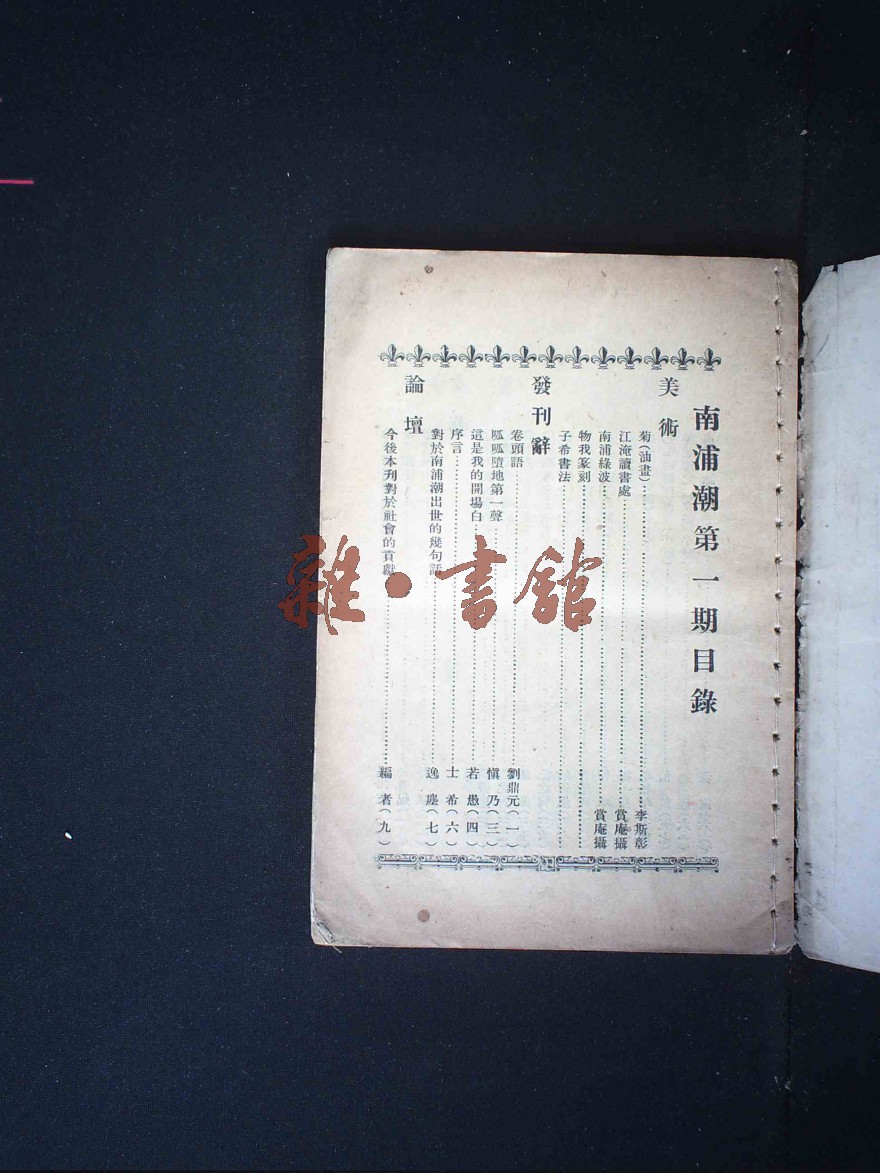 南浦潮第一期目錄
美術
菊(油畫)……李斯彰
江淹讀書處……賞庵攝
南浦綠波……賞庵攝
物我篆刻……
子希書法……
發刊辭
卷頭語……劉鼎元(一)
呱呱墮地第一聲……愼乃(三)
這是我的開場白……若愚(四)
序言……士希(六)
對於南浦潮出世的幾句話……逸塵(七)
論壇
今後本刋對於社會的貢獻……編者(九)
雜·書館